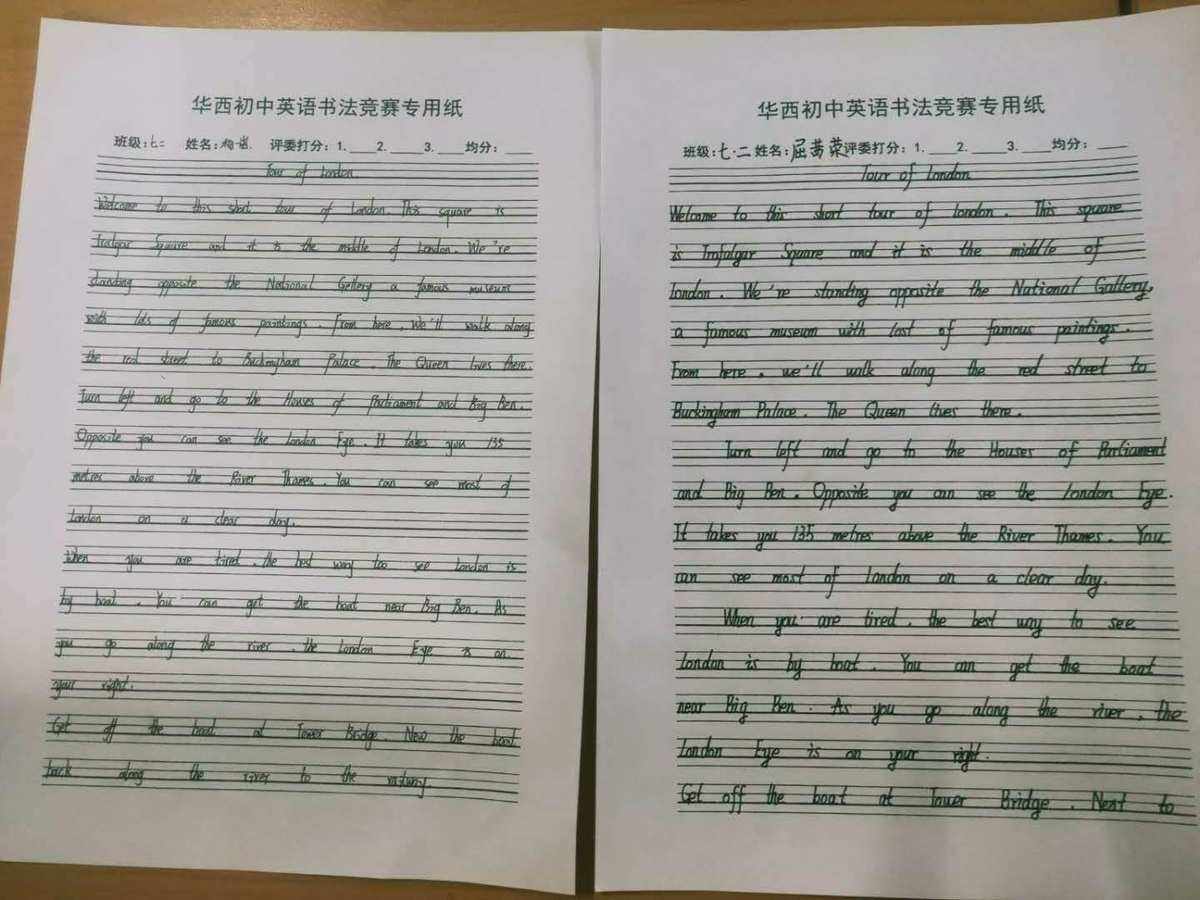 华西初中英语书法竞赛专用纸
班级:七二 姓名: 评委打分: 1. 2. 3. 均分:
Tour of London
Welcome to this short tour of London. This square is
Tralgar Square and it is the middle of London. We're
standing opposite the National Gellery a famous museum
with lots of famous paintings. From here, We'll walk along
the red street to Buckingham Palace. The Queen lives there.
Turn left and go to the Houses of Parliament and Big Ben.
Opposite you can see the London Eye. It takes you 135
metres above the River Thames. You can see most of
London on a clear day.
When you are tired, the best way too see London is
by boat. You can get the boat near Big Ben. As
you go along the river, the London Eye is on
your right.
Get off the boat at Tower Bridge. New the boat
back along the river to the
华西初中英语书法竞赛专用纸
班级:七·二 姓名:屈 荣 评委打分: 1. 2. 3. 均分:
Tour of London
Welcome to this short tour of London. This square
is Trafalgar Square and it is the middle of
London. We're standing opposite the National Gallery,
a famous museum with lost of famous paintings.
From here, we'll walk along the red street to
Buckingham Palace. The Queen lives there.
Turn left and go to the Houses of Parliament
and Big Ben. Opposite you can see the London Eye.
It takes you 135 metres above the River Thames. You
can see most of London on a clear day.
When you are tired, the best way to see
London is by boat. You can get the boat
near Big Ben. As you go along the river, the
London Eye is on your right.
Get off the boat at Tower Bridge. Next to